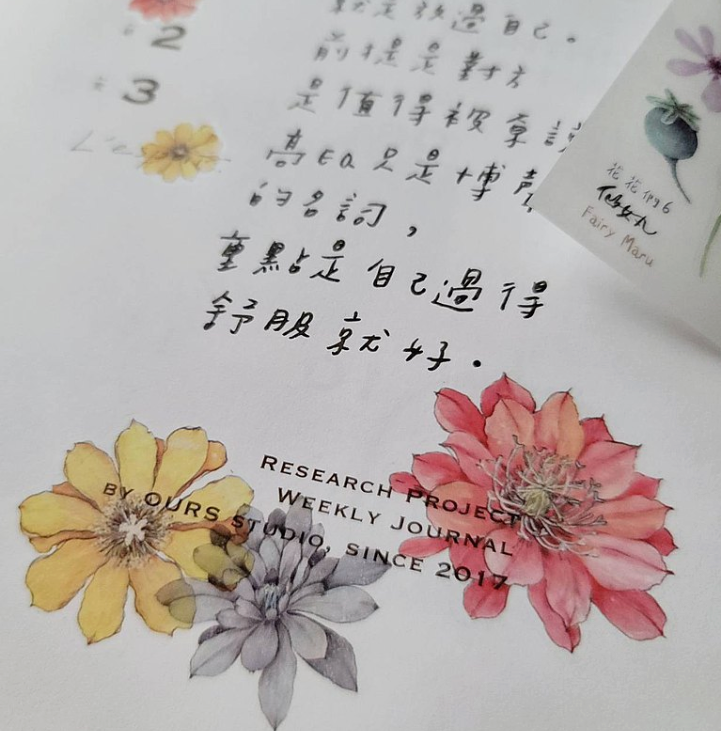 就是放過自己。
2
前提是對方
3
是值得被原諒
高EQ只是博聲
的名詞，
重點是自己過得
舒服就好.
花花仙6
仙女丸
Fairy Maru
RESEARCH PROJECT
WEEKLY JOURNAL
BY OURS STUDIO, SINCE 2017